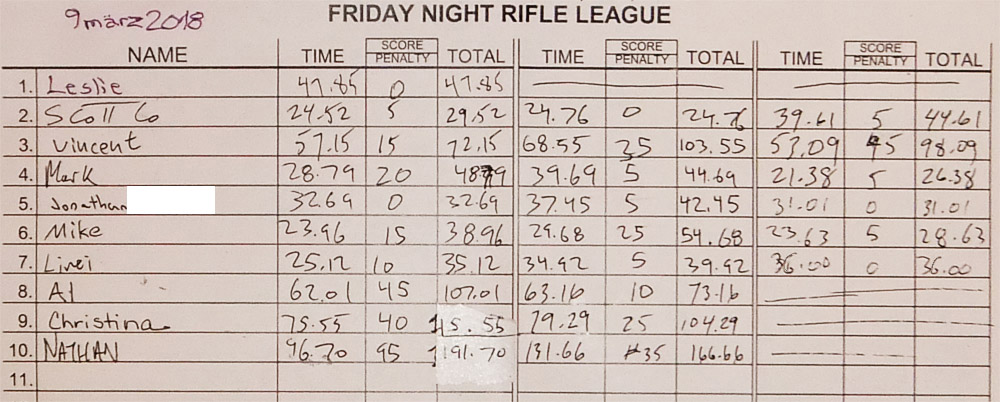 FRIDAY NIGHT RIFLE LEAGUE
9 märz 2018
NAME TIME SCORE PENALTY TOTAL TIME SCORE PENALTY TOTAL TIME SCORE PENALTY TOTAL
1. Leslie 47.85 0 47.85
2. Scott Co 24.52 5 29.52 24.76 0 24.76 39.61 5 44.61
3. Vincent 57.15 15 72.15 68.55 35 103.55 53.09 45 98.09
4. Mark 28.79 20 48.79 39.69 5 44.69 21.38 5 26.38
5. Jonathan 32.69 0 32.69 37.45 5 42.45 31.01 0 31.01
6. Mike 23.96 15 38.96 29.68 25 54.68 23.63 5 28.63
7. 25.12 10 35.12 34.92 5 39.92 36.00 0 36.00
8. Al 62.01 45 107.01 63.16 10 73.16
9. Christina 75.55 40 115.55 79.29 25 104.29
10. NATHAN 96.70 95 191.70 131.66 35 166.66
11.